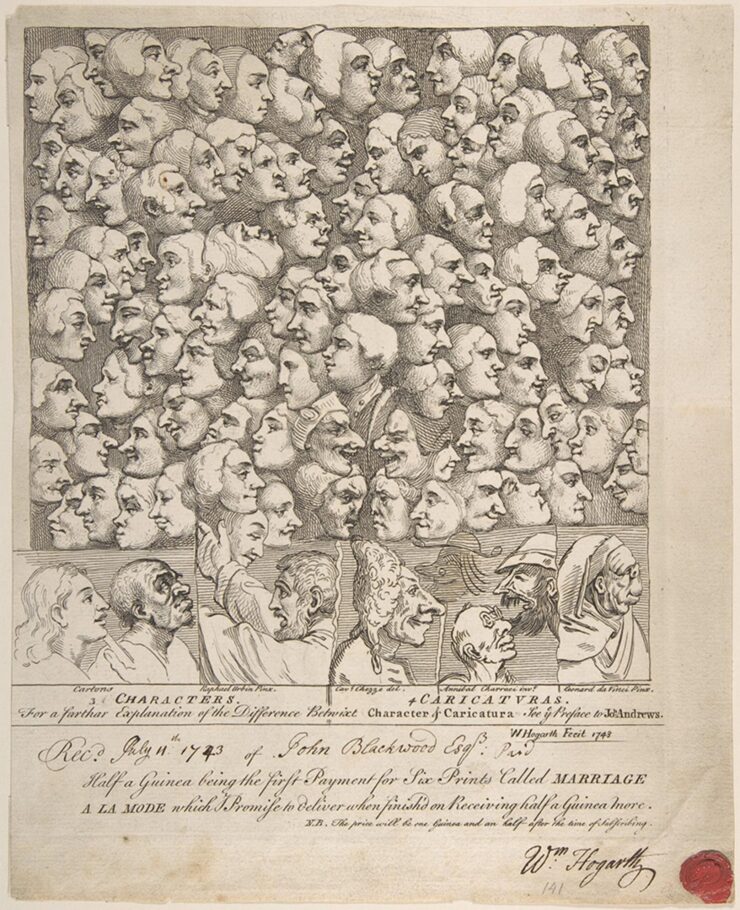 Cartons Raphael Urbin Pinx. Cav.^s Chezze del. Annibal Charracci inv.^t Leonard da Vinci Pinx.
3 CHARACTERS. 4 CARICATURAS.
For a farthar Explanation of the Difference Betwixt Character & Caricatura See y^e Preface to Jo^s Andrews.
W Hogarth Fecit 1743
Rec.^d July 11.^th 1743 of John Blackwood Esq.^r
Half a Guinea being the first Payment for Six Prints Called MARRIAGE
A LA MODE which I Promise to deliver when finish'd on Receiving half a Guinea more.
N.B. The price will be one Guinea and an half after the time of Subscribing.
W.^m Hogarth
141